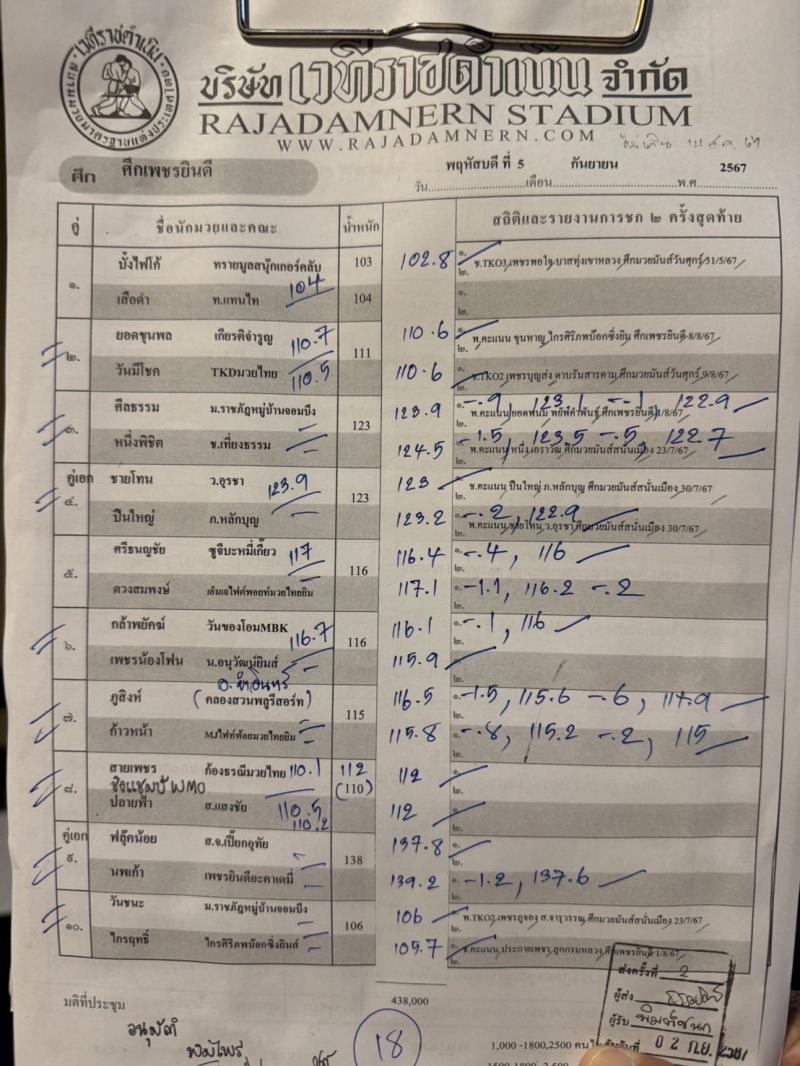 เวทีราชดำเนิน
บริษัท เวทีราชดำเนิน จำกัด
RAJADAMNERN STADIUM
WWW.RAJADAMNERN.COM
ศึก ศึกเพชรยินดี
พฤหัสบดี ที่ 5 กันยายน 2567
วัน เดือน พ.ศ
คู่ ชื่อนักมวยและคณะ น้ำหนัก สถิติและรายงานการชก ๒ ครั้งสุดท้าย
๑. บั้งไฟโก้ ทรายมูลสนุ๊กเกอร์คลับ 103 102.8 ๑. ช.TKO3 เพชรพอใจ บาสทุ่งเขาหลวง ศึกมวยมันส์วันศุกร์ 31/5/67
๒.
เสือดำ ท.แทนไท 104 104 ๑.
๒.
๒. ยอดขุนพล เกียรติจำรูญ 110.7 111 110.6 ๑. พ.คะแนน ขุนหาญ ไกรศิริภพบ๊อกซิ่งยิม ศึกเพชรยินดี 8/8/67
๒.
วันมีโชค TKDมวยไทย 110.5 110.6 ช.TKO2 เพชรบุญส่ง ดาบรันสารคาม ศึกมวยมันส์วันศุกร์ 9/8/67
๓. ศีลธรรม ม.ราชภัฏหมู่บ้านจอมบึง 123 123.9 -.9 123.1 -.1 122.9
พ.คะแนน ยอดพนม พยัฆคำพันธุ์ ศึกเพชรยินดี 1/8/67
หนึ่งพิชิต ช.เที่ยงธรรม 124.5 -1.5 123.5 -.5 122.7
พ.คะแนน หนึ่ง เอราวัณ ศึกมวยมันส์สนั่นเมือง 23/7/67
คู่เอก ๔. ชายโทน ว.อุรชา 123.9 123 123 ช.คะแนน ปืนใหญ่ ภ.หลักบุญ ศึกมวยมันส์สนั่นเมือง 30/7/67
ปืนใหญ่ ภ.หลักบุญ 123.2 -.2, 122.9
พ.คะแนน ชายโทน ว.อุรชา ศึกมวยมันส์สนั่นเมือง 30/7/67
๕. ศรีธนญชัย ชูจีบะหมี่เกี๊ยว 117 116 116.4 ๑. -.4, 116
๒.
ดวงสมพงษ์ เอ็มเจไฟต์พอยท์มวยไทยยิม 117.1 ๑. -1.1, 116.2 -.2
๒.
๖. กล้าพยัคฆ์ วันของโอมMBK 116.7 116 116.1 ๑. -.1, 116
๒.
เพชรน้องโฟน น.อนุวัฒน์ยิมส์ 115.9
๒.
๗. ภูสิงห์ (คลองสวนพลูรีสอร์ท) 115 116.5 ๑. -1.5, 115.6 -.6, 114.9
๒.
ก้าวหน้า MJไฟท์พ้อยมวยไทยยิม 115.8 ๑. -.8, 115.2 -.2, 115
๒.
๘. สายเพชร ก้องธรณีมวยไทย 110.1 112 (110) 112
๒.
ชิงแชมป์ WMO
ปลายฟ้า ส.แสงชัย 110.5 110.2 112
๒.
คู่เอก ๙. ฟลุ๊คน้อย ส.จ.เปี๊ยกอุทัย 138 137.8
๒.
นพเก้า เพชรยินดีอะคาเดมี่ 139.2 ๑. -1.2, 137.6
๒.
๑๐. วันชนะ ม.ราชภัฏหมู่บ้านจอมบึง 106 106 พ.TKO2 เพชรภูจอง ส.จารุวรรณ ศึกมวยมันส์สนั่นเมือง 23/7/67
๒.
ไกรฤทธิ์ ไกรศิริภพบ๊อกซิ่งยิมส์ 105.7 ช.คะแนน ประกายเพชร ลูกกรมหลวง ศึกเพชรยินดี 1/8/67
๒.
มติที่ประชุม 438,000
อนุมัติ
พิมไพร
18
ส่งครั้งที่ 2
ผู้ส่ง
ผู้รับ พิมพ์ชนก
1,000 -1800,2500 คน วันที่ 02 ก.ย. 2567